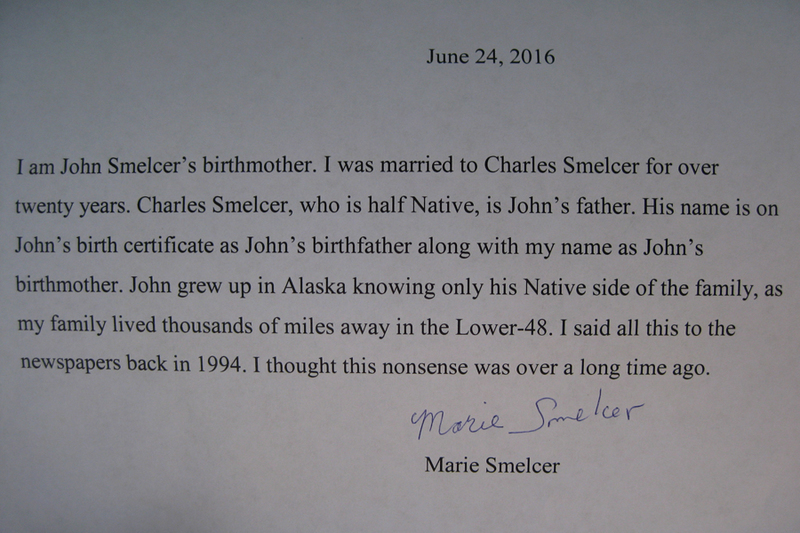 June 24, 2016
I am John Smelcer's birthmother. I was married to Charles Smelcer for over
twenty years. Charles Smelcer, who is half Native, is John's father. His name is on
John's birth certificate as John's birthfather along with my name as John's
birthmother. John grew up in Alaska knowing only his Native side of the family, as
my family lived thousands of miles away in the Lower-48. I said all this to the
newspapers back in 1994. I thought this nonsense was over a long time ago.
Marie Smelcer
Marie Smelcer